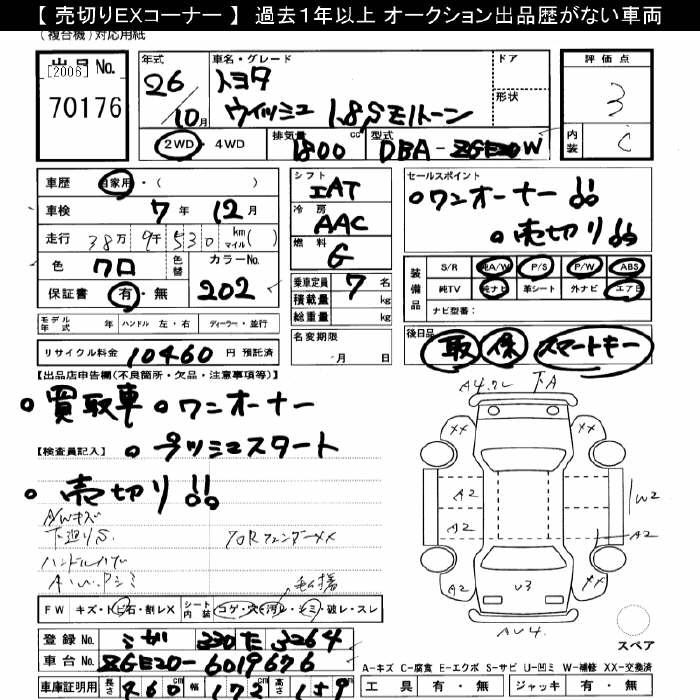 【 売切りEXコーナー 】 過去1年以上 オークション出品歴がない車両
(複合機)対応用紙
出品No.
[2006]
70176
年式
26/10月
車名・グレード
トヨタ
ウイッシュ 1.8Sモノトーン
ドア
形状
評価点
3
内装
C
2WD・4WD
排気量
1800 cc
型式
DBA-ZGE20W
車歴 自家用・( )
車検 7年 12月
走行 38万 9千 530 km マイル ( )
色 クロ
色替
カラーNo.
202
保証書 有・無
シフト
IAT
冷房
AAC
燃料
G
乗車定員 7 名
積載量 kg
総重量 kg
名変期限
月 日
セールスポイント
○ワンオーナー!!
○売切り!!
装備品
S/R 純A/W P/S P/W ABS
純TV 純ナビ 革シート 外ナビ エアB
ナビ型番:
モデル年式 年 ハンドル 左・右 ディーラー・並行
リサイクル料金 10460 円 預託済
後日品
取 保 スマートキー
【出品店申告欄(不良箇所・欠品・注意事項等)】
○買取車 ○ワンオーナー
○プッシュスタート
【検査員記入】
○売切り!!
A/Wキズ
下廻りS
ハンドルハゲ
FW キズ・トビ石・割レX
シート内装 コゲ・穴・汚レ・シミ・破レ・スレ
登録No.
330 た 3264
車台No. ZGE20-6019676
車庫証明用 長さ 460 cm 幅 172 cm 高さ 159
下A
XX
XX
A2
A2
W2
A2
A2
XX
U3
スペア
A-キズ C-腐食 E-エクボ S-サビ U-凹ミ W-補修 XX-交換済
工具 有・無 ジャッキ 有・無